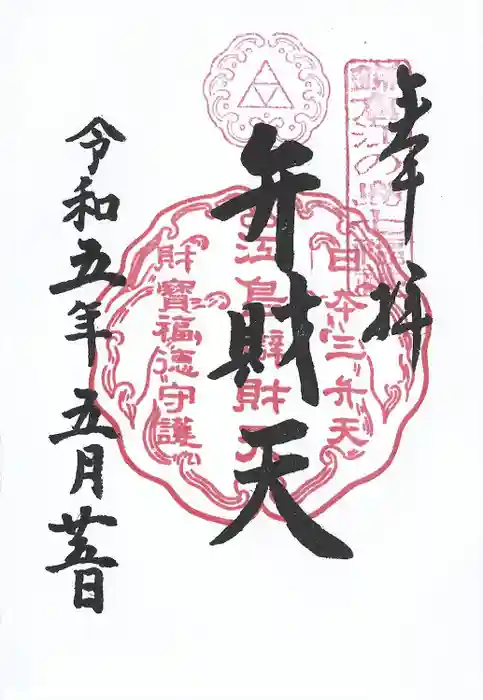 奉拝
日本三弁天
弁財天
財寶福徳守護
令和五年五月廿五日